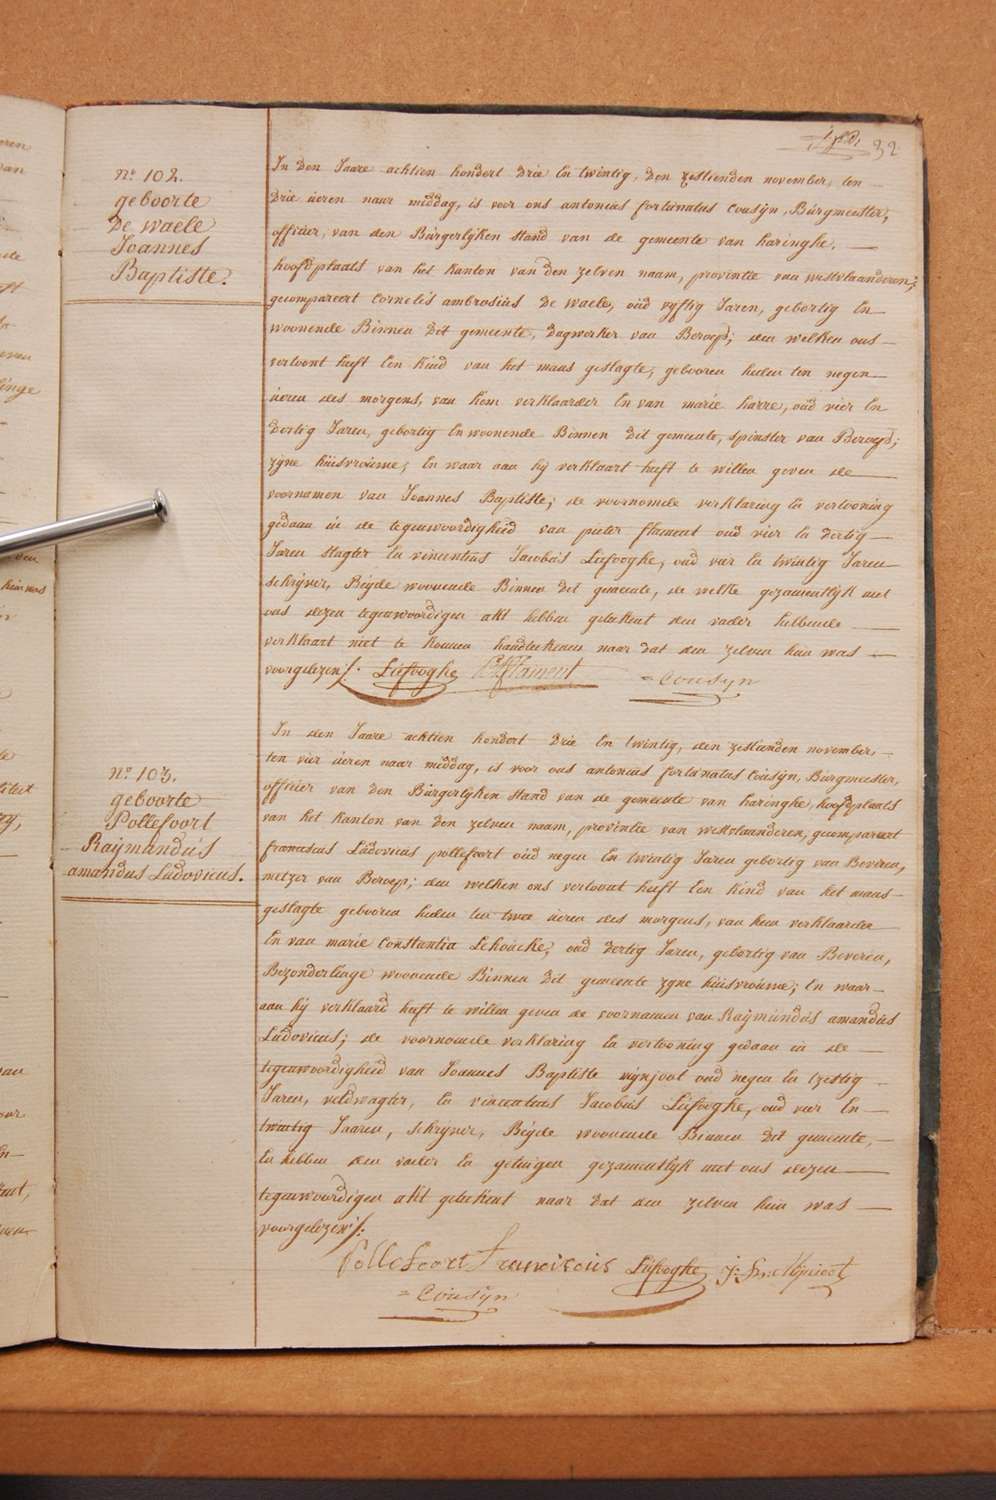 32
N.º 102.
geboorte
De waele
Joannes
Baptiste.
In den Jaare achtien hondert drie En twintig, den zestienden november, ten
drie üeren naer middag, is voor ons antonius fortunatus Cousÿn, Bürgmeester,
officier, van den Bürgerlÿken stand van de gemeente van haringhe,
hoofdplaats van het Kanton van den zelven naam, provintie van westvlaanderen;
gecompareert Cornelis ambrosius De waele, oüd vyftig Jaren, gebortig En
woonende Binnen dit gemeente, dagwerker van Beroep; den welken ons
vertoont heeft Een Kind van het mans geslagte, gebooren heden ten negen
üeren des morgens, van hem verklaarder En van marie harre, oüd vier En
dertig Jaren, gebortig En woonende Binnen dit gemeente, spinster van Beroep;
zÿne hüisvroüwe; En waar aan hy verklaart heeft te willen geven de
voornamen van Joannes Baptiste; de voornoemde verklaring En vertooning
gedaan in de tegenwoordigheid van pieter flament oud vier En dertig
Jaren slagter En vincentius Jacobus Liefooghe, oud vier En twintig Jaren
schrÿver, Beÿde woonende Binnen dit gemeente, de welke gezamentlÿk met
ons dezen tegenwoordigen akt hebben geteekent den vader hebbende
verklaart niet te konnen handteekenen naer dat den zelven hun was
voorgelezen/. Liefooghe P. Flament
= Cousÿn
N.º 103.
geboorte
Pollefoort
Raÿmundüs
amandus Ludovicus.
In den Jaare achtien hondert drie En twintig, den zestienden november,
ten vier üeren naar middag, is voor ons antonius fortunatus Cousÿn, Bürgmeester,
officier van den Bürgerlÿken stand van de gemeente van haringhe, hoofdplaats
van het Kanton van den zelven naam, provintie van westvlaanderen, gecompareert
franciscus Ludovicus pollefoort oüd negen En twintig Jaren gebortig van Beveren,
metzer van Beroep; den welken ons vertoont heeft Een Kind van het mans
geslagte gebooren heden ten twee üeren des morgens, van hem verklaarder
En van marie Constantia Lehoucke, oud dertig Jaren, gebortig van Beveren,
Bezonderlinge woonende Binnen dit gemeente zÿne hüisvroüwe; En waar
aan hÿ verklaard heeft te willen geven de voornamen van Raÿmündüs amandüs
Lüdovicus; de voornoemde verklaring En vertooning gedaan in de
tegenwoordigheid van Joannes Baptiste oud negen En tzestig
Jaren, veldwagter, En vincentius Jacobus Liefooghe, oud vier En
twintig Jaaren, schrÿver, Beÿde woonende Binnen dit gemeente,
En hebben den vader En getuigen gezamentlÿk met ons dezen
tegenwoordigen akt geteekent naar dat den zelven hun was
voorgelezen/:
Pollefoort Franciscus Liefooghe
= Cousÿn